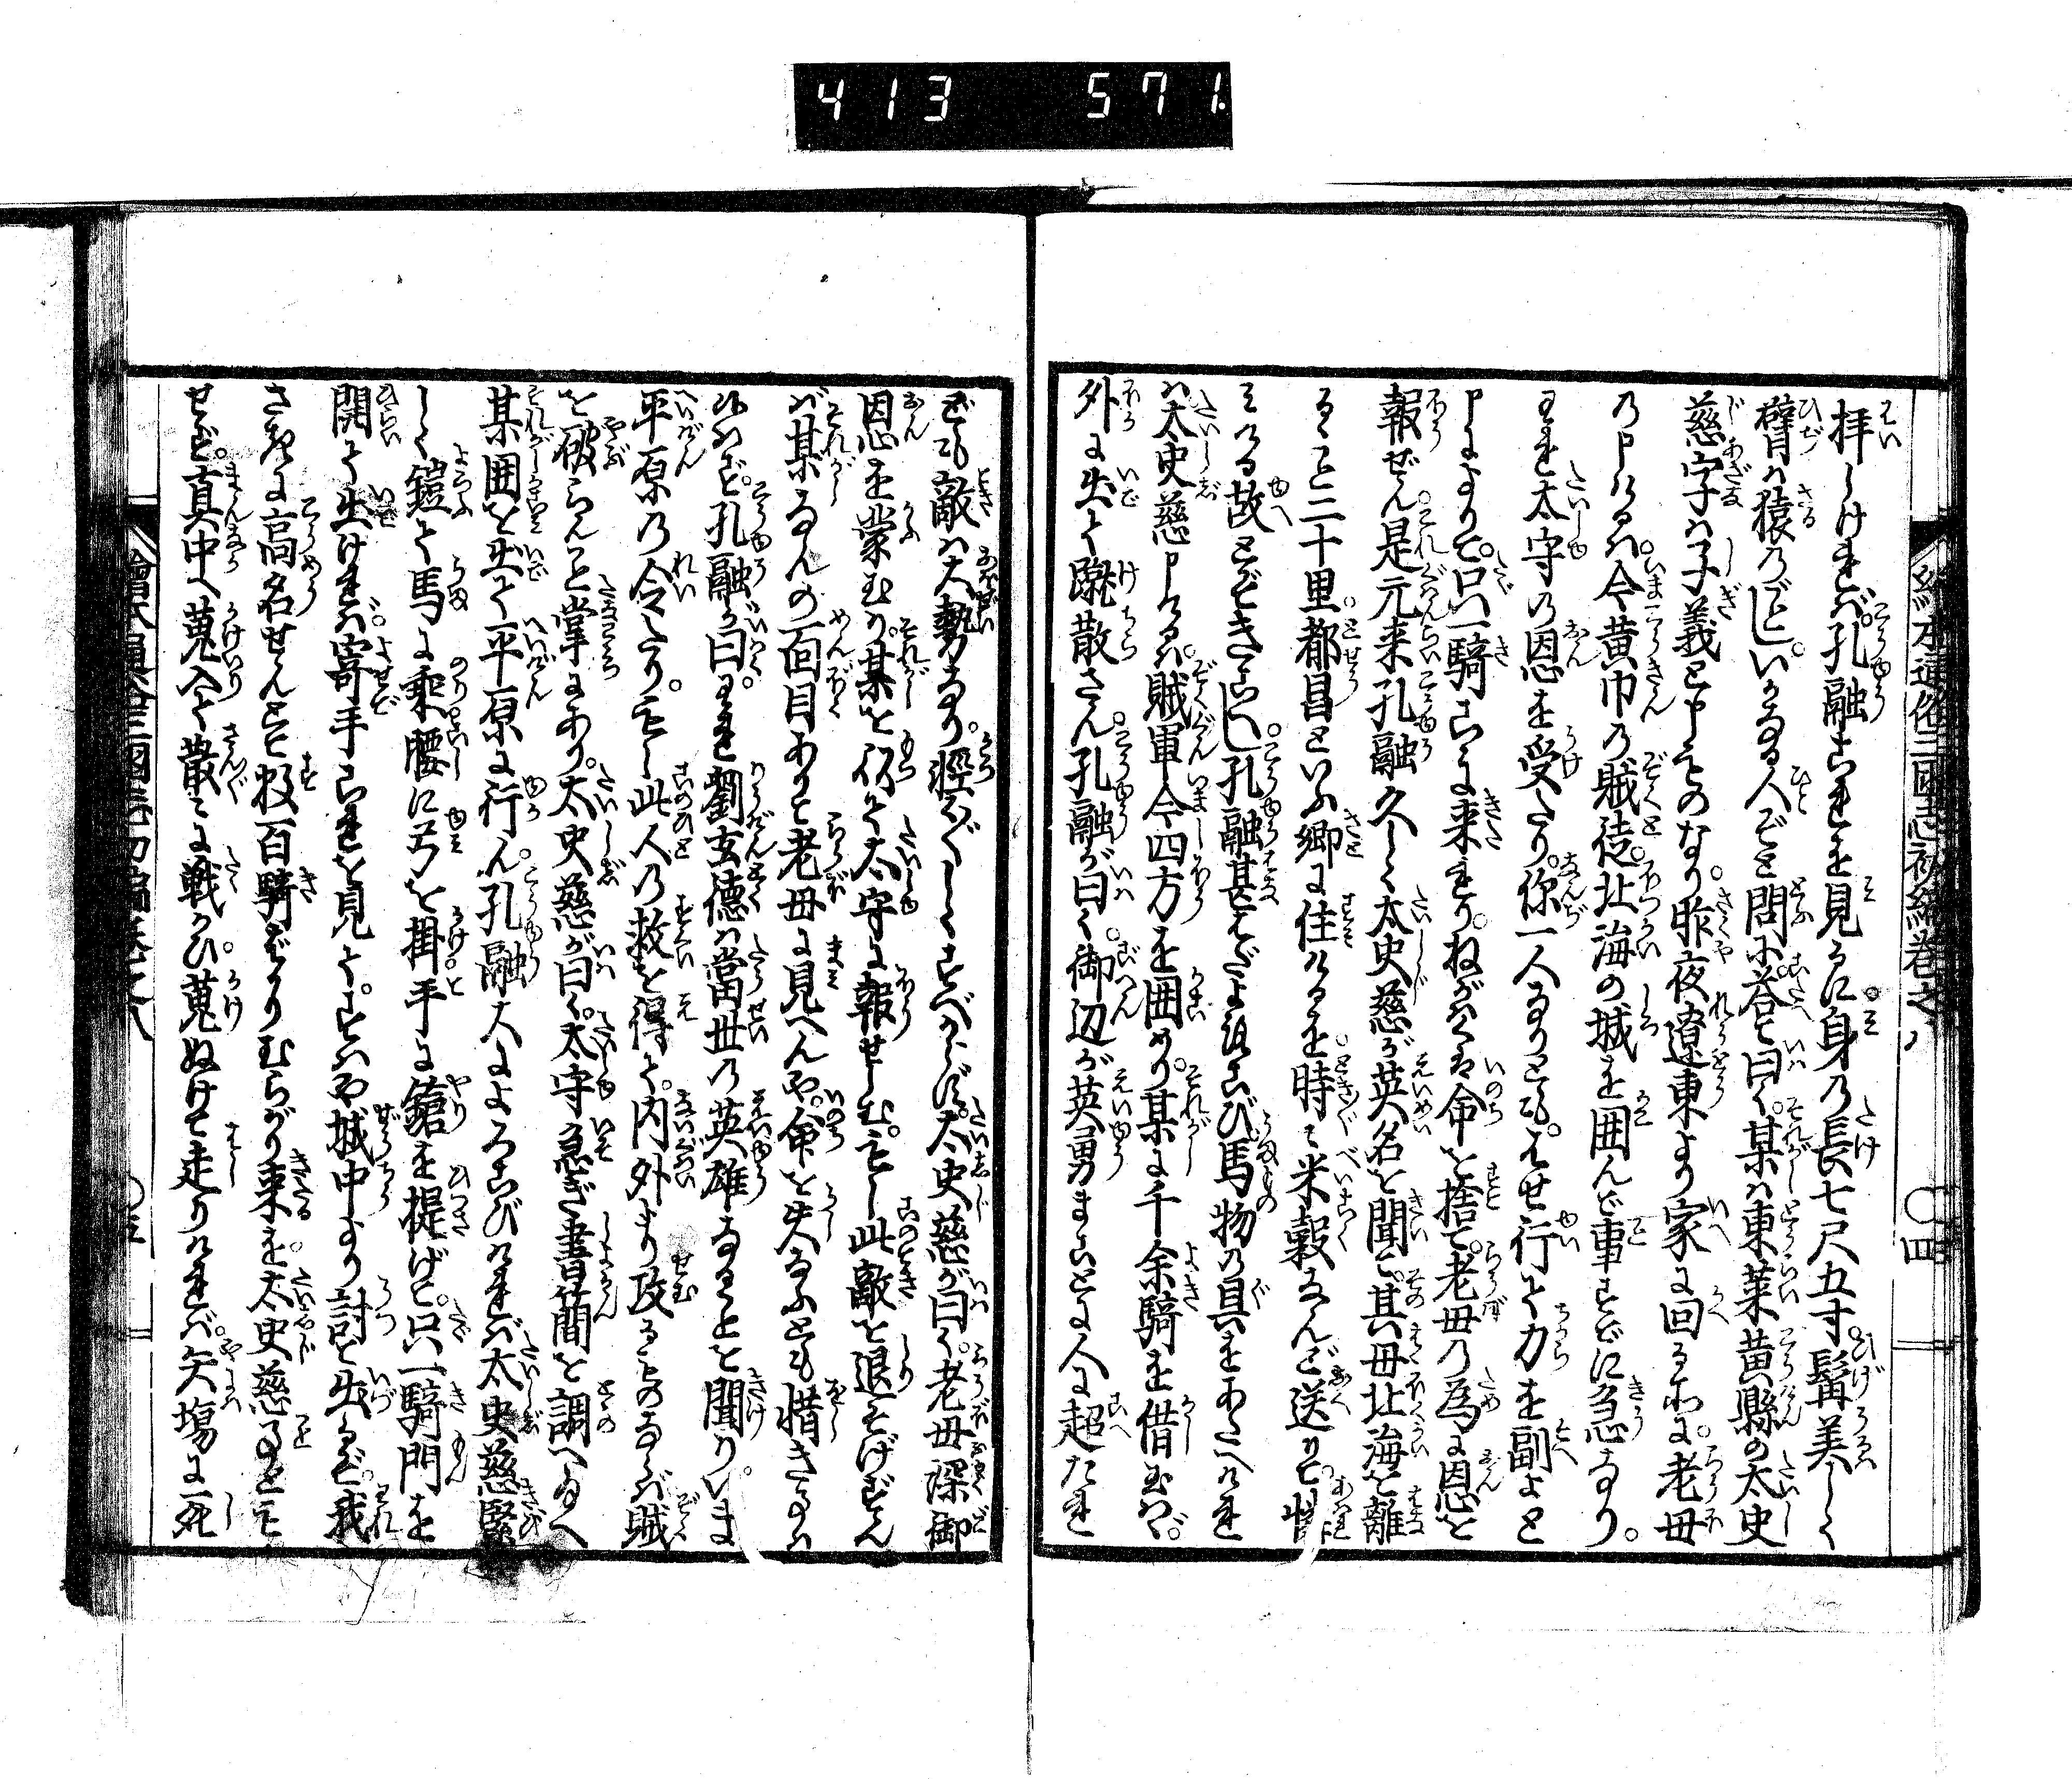 413 571
繪本通俗三國志初編卷之八 〇四
拝しければ。孔融これを見るに。身の長七尺五寸。髯美しく
臂は猿のごとし。いかなる人ぞと問ふ。答て曰く。某は東莱黄縣の太史
慈字は子義と申ものなり。昨夜遼東より家に回るわに。老母
の申けるは。今黄巾の賊徒。北海の城を囲んで事すでに急なり。
われ太守の恩を受たり。你一人なりとも。はせ行て力を副よと
申によりて。只一騎こゝに来れり。ねがはくは命を捨て。老母の為に恩を
報ぜん。是元来孔融久しく太史慈が英名を聞て。其母北海を離
るゝこと二十里。都昌といふ郷に住けるを。時々米穀なんど送りて。憐
みける故とぞきこへし。孔融甚だよろこび馬物の具をあたへければ
太史慈申けるは。賊軍今四方を囲めり。某に千余騎を借玉はゞ。
外に出て蹴散さん。孔融が曰く。御辺が英勇まことに人に超たれ
ども敵は大勢なり。軽〴〵しくすべからず。太史慈が曰く。老母深御
恩を蒙むり。某を以て太守に報せしむ。もし此敵を退そげずん
ば某なんの面目ありて老母に見へん。や命を失なふとも惜きことは
候はず。孔融が曰。われ劉玄德は當世の英雄なることを聞けり。いま
平原の令たり。もし此人の救を得て。内外より攻るものならば賊
を破らんこと掌にあり。太史慈が曰く。太守急ぎ書簡を調へ玉へ
某囲を出て平原に行ん。孔融大によろこびければ太史慈緊
しく鎧て馬に乗腰に弓を掛。手に鎗を提げて。只一騎門を
開て出ければ。寄手これを見て。すはや城中より討て出るぞ。我
さきに高名せんとて数百騎ばかりむらがり来るを。太史慈ことゝも
せず。真中へ蒐入て散々に戦かひ。蒐ぬけて走りければ。矢塲に死
繪本通俗三國志初編卷之八 〇五